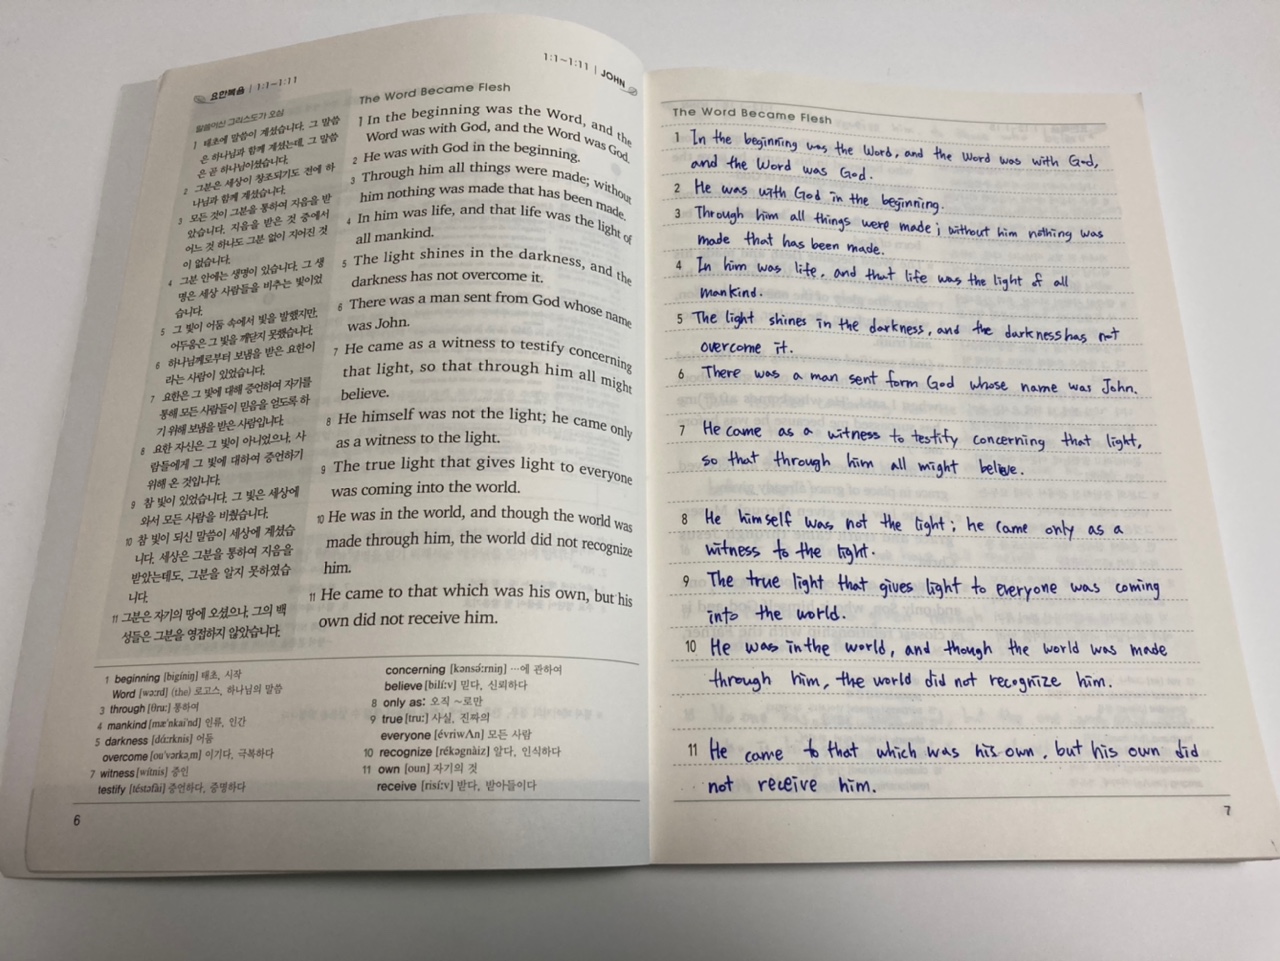 요한복음 | 1:1~1:11
말씀이신 그리스도가 오심
1 태초에 말씀이 계셨습니다. 그 말씀
은 하나님과 함께 계셨는데, 그 말씀
은 곧 하나님이셨습니다.
2 그분은 세상이 창조되기도 전에 하
나님과 함께 계셨습니다.
3 모든 것이 그분을 통하여 지음을 받
았습니다. 지음을 받은 것 중에서
어느 것 하나도 그분 없이 지어진 것
이 없습니다.
4 그분 안에는 생명이 있습니다. 그 생
명은 세상 사람들을 비추는 빛이었
습니다.
5 그 빛이 어둠 속에서 빛을 발했지만,
어두움은 그 빛을 깨닫지 못했습니다.
6 하나님께로부터 보냄을 받은 요한이
라는 사람이 있었습니다.
7 요한은 그 빛에 대해 증언하여 자기를
통해 모든 사람들이 믿음을 얻도록 하
기 위해 보냄을 받은 사람입니다.
8 요한 자신은 그 빛이 아니었으나, 사
람들에게 그 빛에 대하여 증언하기
위해 온 것입니다.
9 참 빛이 있었습니다. 그 빛은 세상에
와서 모든 사람을 비췄습니다.
10 참 빛이 되신 말씀이 세상에 계셨습
니다. 세상은 그분을 통하여 지음을
받았는데도, 그분을 알지 못하였습
니다.
11 그분은 자기의 땅에 오셨으나, 그의 백
성들은 그분을 영접하지 않았습니다.
1:1~1:11 | JOHN
The Word Became Flesh
1 In the beginning was the Word, and the
Word was with God, and the Word was God.
2 He was with God in the beginning.
3 Through him all things were made; without
him nothing was made that has been made.
4 In him was life, and that life was the light of
all mankind.
5 The light shines in the darkness, and the
darkness has not overcome it.
6 There was a man sent from God whose name
was John.
7 He came as a witness to testify concerning
that light, so that through him all might
believe.
8 He himself was not the light; he came only
as a witness to the light.
9 The true light that gives light to everyone
was coming into the world.
10 He was in the world, and though the world was
made through him, the world did not recognize
him.
11 He came to that which was his own, but his
own did not receive him.
1 beginning [bigíniŋ] 태초, 시작
Word [wəːrd] (the) 로고스, 하나님의 말씀
3 through [θruː] 통하여
4 mankind [mæ'nkai'nd] 인류, 인간
5 darkness [dάːrknis] 어둠
overcome [ou'vərkə,m] 이기다, 극복하다
7 witness [witnis] 증인
testify [téstəfài] 증언하다, 증명하다
concerning [kənsə́ːrniŋ] …에 관하여
believe [bilíːv] 믿다, 신뢰하다
8 only as: 오직 ~로만
9 true [truː] 사실, 진짜의
everyone [évriwʌn] 모든 사람
10 recognize [rékəgnàiz] 알다, 인식하다
11 own [oun] 자기의 것
receive [risíːv] 받다, 받아들이다
6
The Word Became Flesh
1 In the beginning was the Word, and the Word was with God,
and the Word was God.
2 He was with God in the beginning.
3 Through him all things were made; without him nothing was
made that has been made.
4 In him was life, and that life was the light of all
mankind.
5 The light shines in the darkness, and the darkness has not
overcome it.
6 There was a man sent form God whose name was John.
7 He came as a witness to testify concerning that light,
so that through him all might believe.
8 He himself was not the light; he came only as a
witness to the light.
9 The true light that gives light to everyone was coming
into the world.
10 He was in the world, and though the world was made
through him, the world did not recognize him.
11 He came to that which was his own, but his own did
not receive him.
7